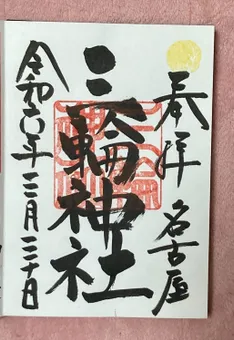 奉拝 名古屋
三輪神社
令和六年三月二十日